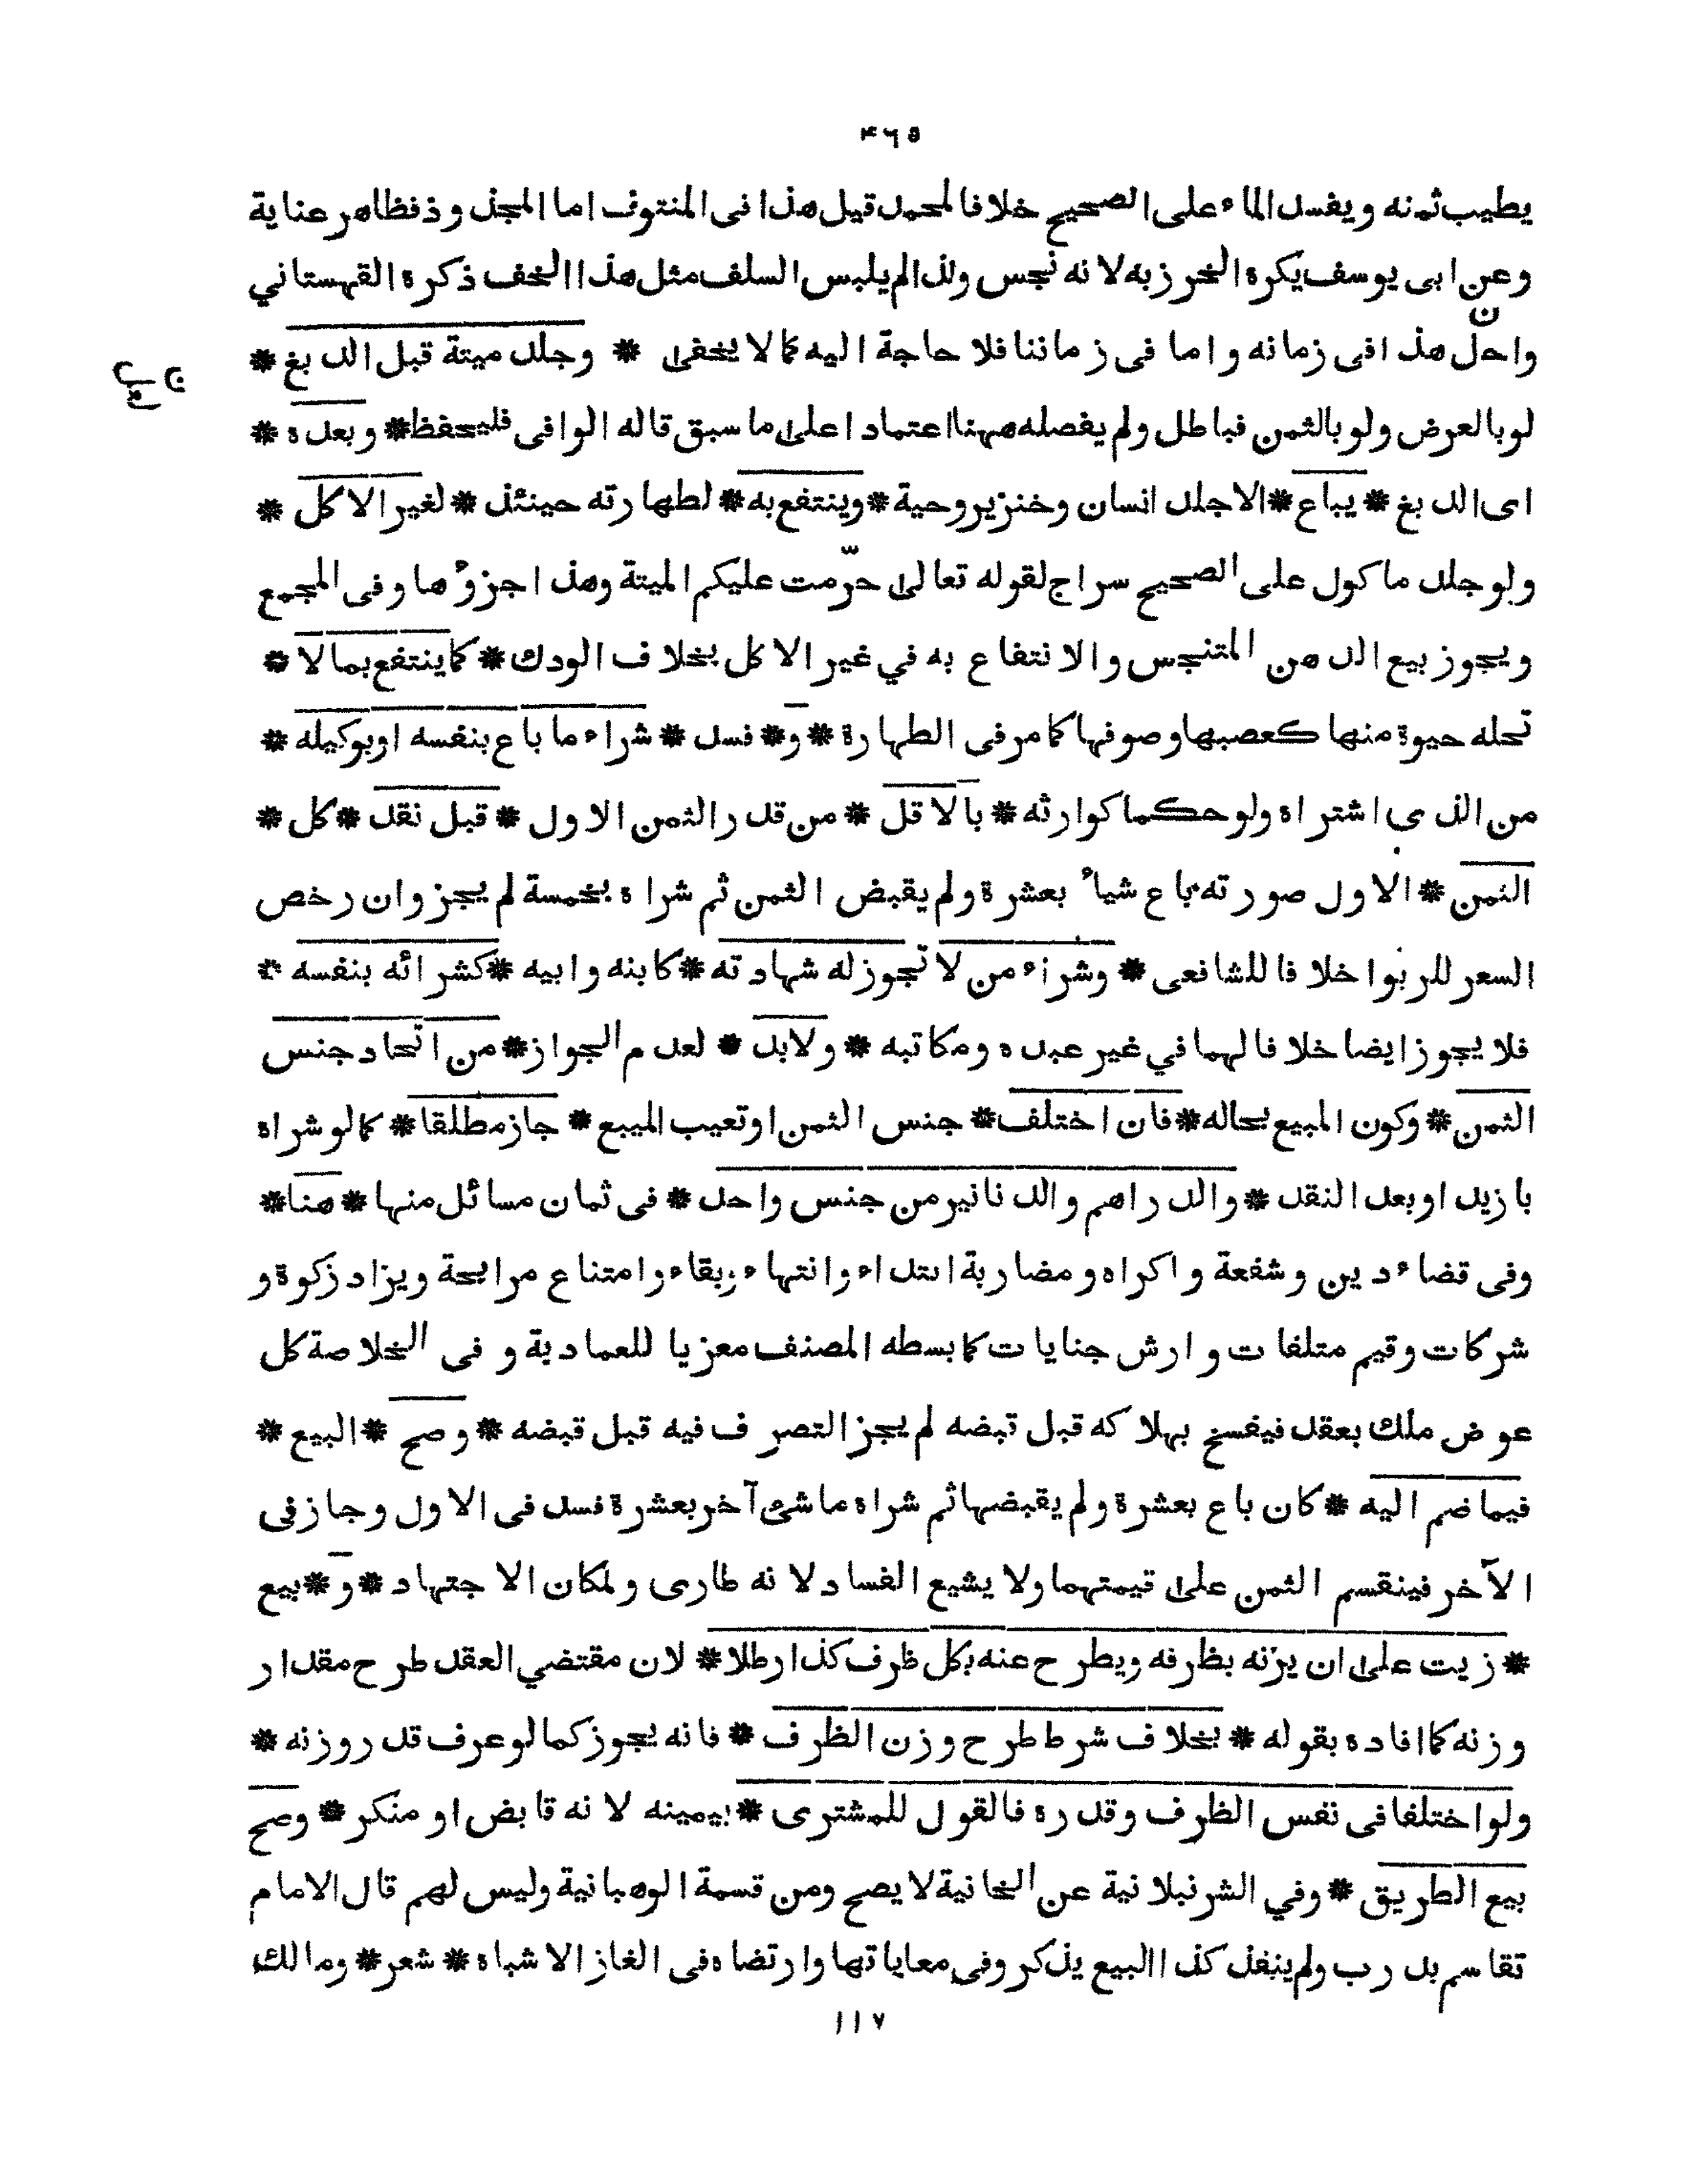 ۴۶۵
يطيب ثمنه ويفسد الماء على الصحيح خلافا لمحمد قيل هذا فى المنتوف اما المجذوذ فظاهر عناية
وعن ابى يوسف يكره الخرز به لانه نجس ولذا لم يلبس السلف مثل هذا الخف ذكره القهستاني
ن
واحل هذا فى زمانه واما فى زماننا فلا حاجة اليه كما لا يخفى * وجلد ميتة قبل الدبغ *
لو بالعرض ولو بالثمن فباطل ولم يفصله ههنا اعتمادا على ما سبق قاله الوافى فليحفظ * وبعده *
اى الدبغ * يباع * الا جلد انسان وخنزير وحية * وينتفع به * لطهارته حينئذ * لغير الاكل *
ولو جلد ماكول على الصحيح سراج لقوله تعالى حرّمت عليكم الميتة وهذا جزؤها وفى المجمع
ويجوز بيع الدهن المتنجس والانتفاع به في غير الاكل بخلاف الودك * كما ينتفع بما لا *
تحله حيوة منها كعصبها وصوفها كما مر فى الطهارة * و * فسد * شراء ما باع بنفسه او بوكيله *
من الذى اشتراه ولو حكما كوارثه * بالاقل * من قدر الثمن الاول * قبل نقد * كل *
الثمن * الاول صورته باع شياء بعشرة ولم يقبض الثمن ثم شراه بخمسة لم يجز وان رخص
السعر للربوا خلافا للشافعى * وشراء من لا تجوز له شهادته * كابنه وابيه * كشرائه بنفسه *
فلا يجوز ايضا خلافا لهما في غير عبده ومكاتبه * ولابد * لعدم الجواز * من اتحاد جنس
الثمن * وكون المبيع بحاله * فان اختلف * جنس الثمن او تعيب المبيع * جاز مطلقا * كما لو شراه
بازيد او بعد النقد * والدراهم والدنانير من جنس واحد * فى ثمان مسائل منها * هنا *
وفى قضاء دين وشفعة واكراه ومضاربة ابتداء وانتهاء وبقاء وامتناع مرابحة ويزاد زكوة و
شركات وقيم متلفات وارش جنايات كما بسطه المصنف معزيا للعمادية وفى الخلاصة كل
عوض ملك بعقد فيفسخ بهلاكه قبل قبضه لم يجز التصرف فيه قبل قبضه * وصح * البيع *
فيما ضم اليه * كان باع بعشرة ولم يقبضها ثم شراه ماشئ آخر بعشرة فسد فى الاول وجاز فى
الآخر فينقسم الثمن على قيمتهما ولا يشيع الفساد لانه طارى ولمكان الاجتهاد * و * بيع
* زيت على ان يزنه بظرفه ويطرح عنه بكل ظرف كذا رطلا * لان مقتضي العقد طرح مقدار
وزنه كما افاده بقوله * بخلاف شرط طرح وزن الظرف * فانه يجوز كما لو عرف قدر وزنه *
ولو اختلفا فى نفس الظرف وقدره فالقول للمشترى * بيمينه لانه قابض او منكر * وصح
بيع الطريق * وفي الشرنبلانية عن الخانية لا يصح ومن قسمة الوهبانية وليس لهم قال الامام
تقاسم بدرب ولم ينفذ كذا البيع يذكر وفى معاياتها وارتضاه فى الغاز الاشباه * شعر * ومالك
۱۱۷